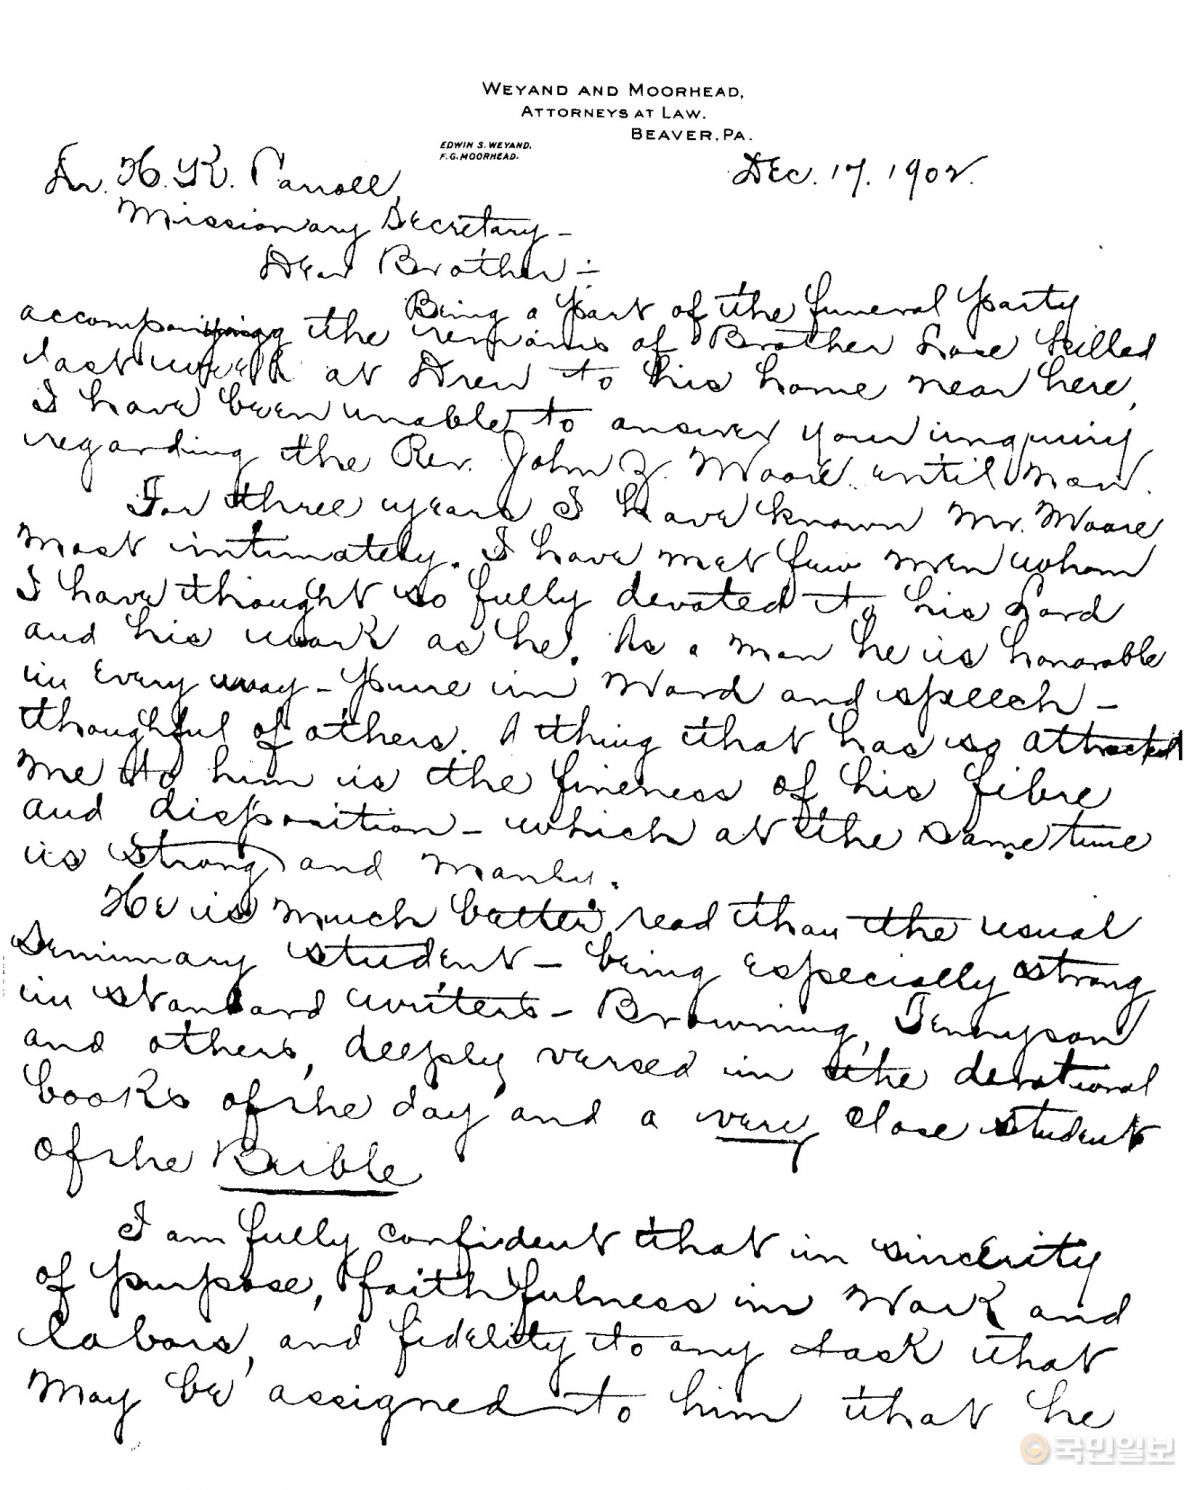 WEYAND AND MOORHEAD,
ATTORNEYS AT LAW.
BEAVER, PA.
EDWIN S. WEYAND.
F. G. MOORHEAD.
Dec. 17. 1902.
Dr. H. K. Carroll,
Missionary Secretary –
Dear Brother:–
Being a part of the funeral party
accompanying the remains of Brother Lose killed
last week at Drew to his home near here,
I have been unable to answer your inquiry
regarding the Rev. John Z. Moore until now.
For three years I have known Mr. Moore
most intimately. I have met few men whom
I have thought so fully devoted to his Lord
and his work as he. As a man he is honorable
in every way – pure in word and speech –
thoughtful of others. A thing that has so attracted
me to him is the fineness of his fibre
and disposition – which at the same time
is strong and manly.
He is much better read than the usual
seminary student – being especially strong
in standard writers – Browning, Tennyson
and others, deeply versed in the devotional
books of the day and a very close student
of the Bible
I am fully confident that in sincerity
of purpose, faithfulness in work and
labors, and fidelity to any task that
may be assigned to him that he
국민일보